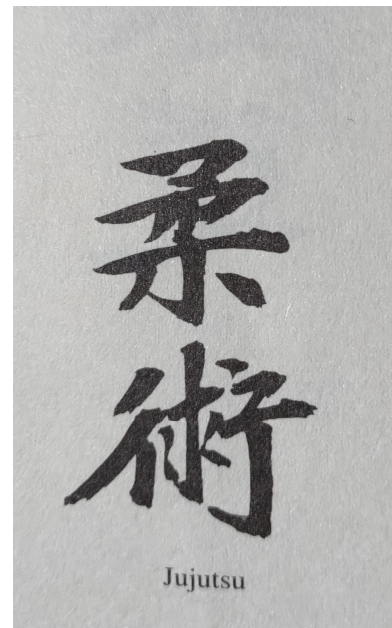 柔術
Jujutsu